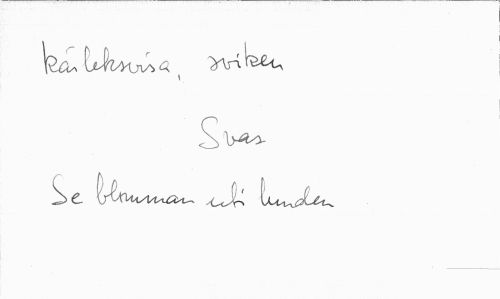 kärleksvisa, sviken
Svar
Se blomman uti lunden